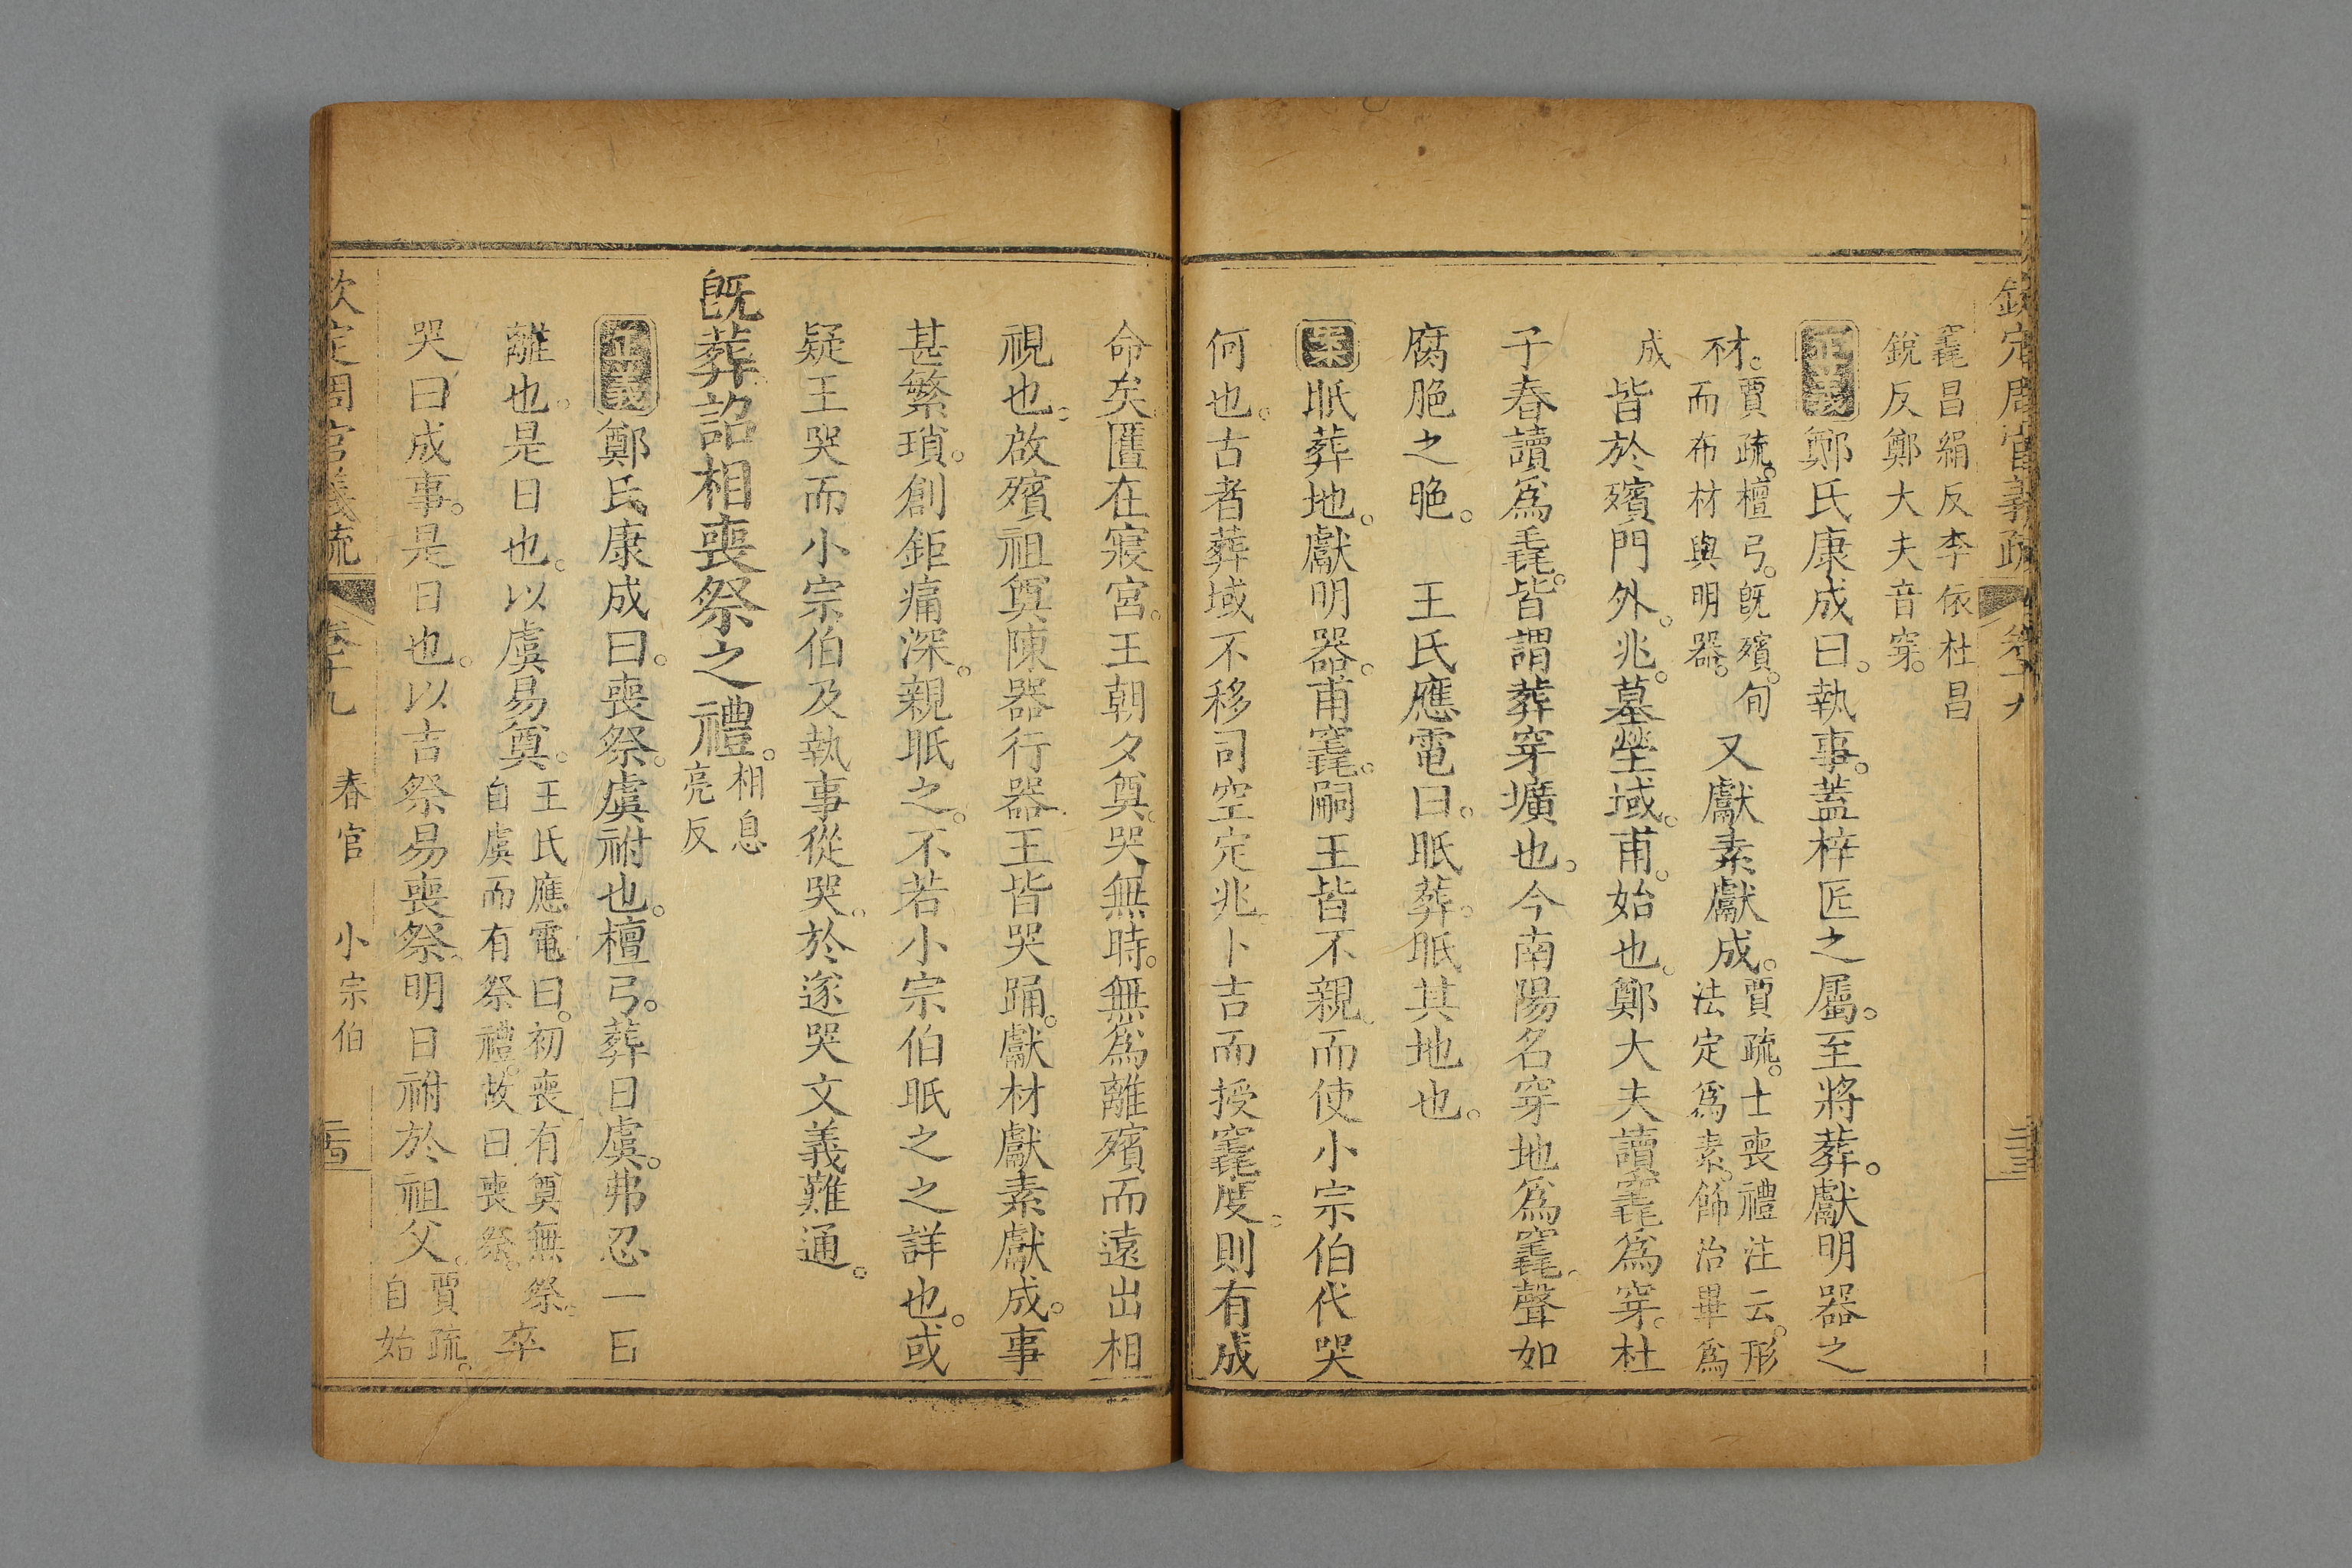 欽定周官義疏 卷十九
竁昌絹反李依杜昌
銳反鄭大夫音穿。
正義鄭氏康成曰。執事。蓋梓匠之屬。至將葬。獻明器之
材。賈疏。檀弓。旣殯。旬而布材與明器。又獻素獻成。賈疏。士喪禮注云。形法定爲素。飾治畢爲
成皆於殯門外。兆。墓塋域。甫。始也。鄭大夫讀竁爲穿。杜
子春讀爲毳。皆謂葬穿壙也。今南陽名穿地爲竁。聲如
腐脃之脃。 王氏應電曰。眡葬。眡其地也。
案眡葬地。獻明器。甫竁。嗣王皆不親。而使小宗伯代哭
何也。古者葬域不移司空定兆。卜吉而授竁度。則有成
命矣。匶在寢宮。王朝夕奠。哭無時。無爲離殯而遠出相
視也。啟殯祖奠陳器行器。王皆哭踊。獻材獻素獻成。事
甚繁瑣。創鉅痛深。親眡之。不若小宗伯眡之之詳也。或
疑王哭而小宗伯及執事從哭。於遂哭文義難通。
旣葬詔相喪祭之禮。相息亮反
正義鄭氏康成曰。喪祭。虞祔也。檀弓。葬日虞。弗忍一日
離也。是日也。以虞易奠。王氏應電曰。初喪有奠無祭。自虞而有祭禮。故曰喪祭。卒
哭曰成事。是日也。以吉祭易喪祭。明日祔於祖父。賈疏。自始
欽定周官義疏 卷十九 春官 小宗伯